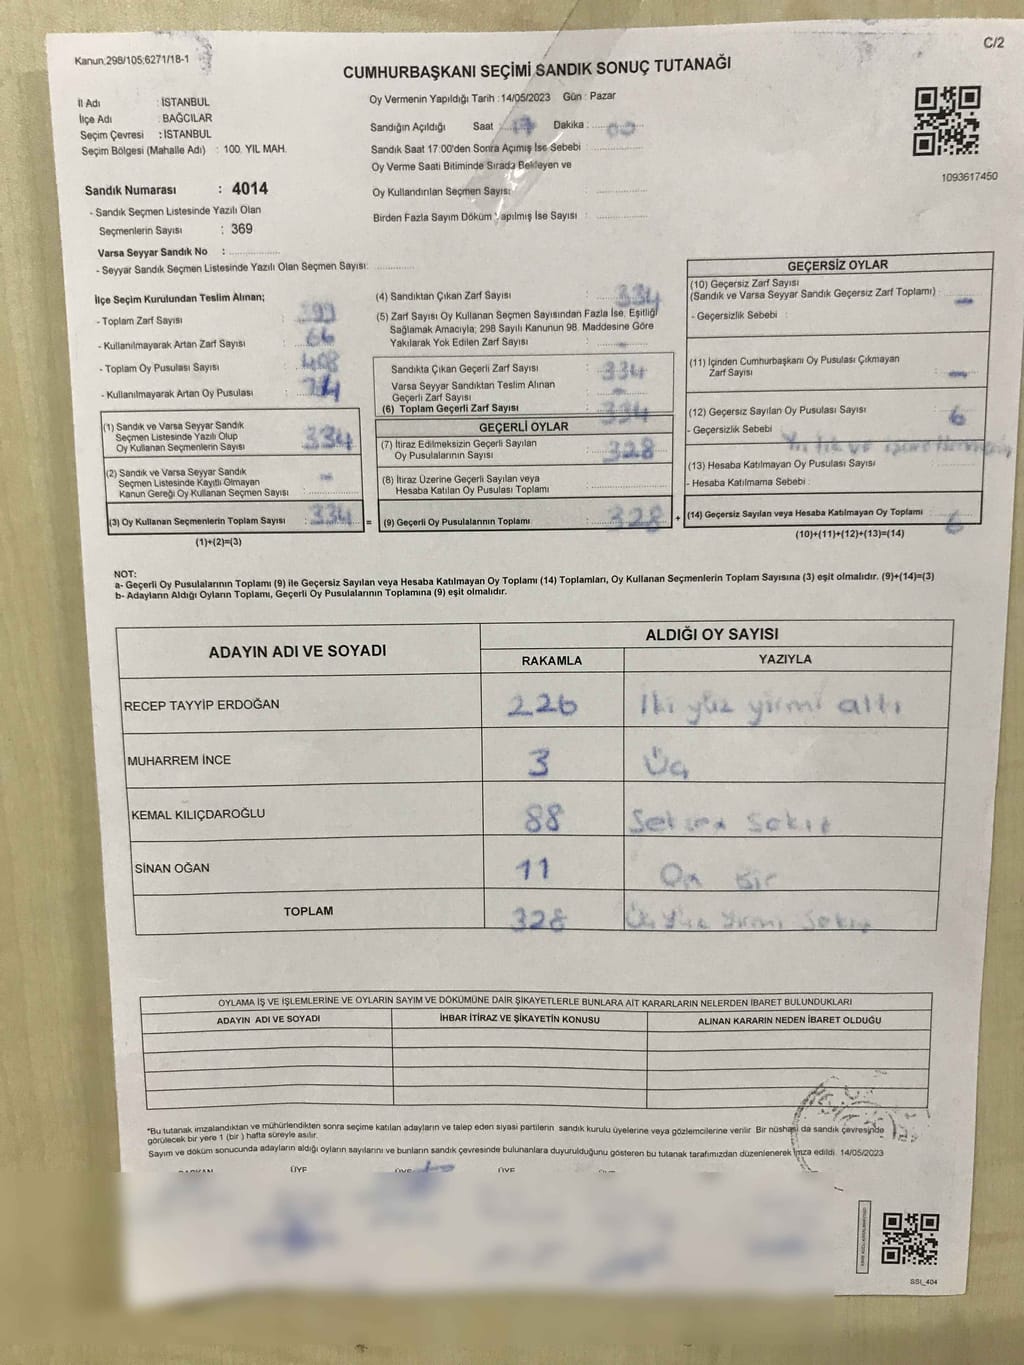 Kanun:298/105;6271/18-1
C/2
CUMHURBAŞKANI SEÇİMİ SANDIK SONUÇ TUTANAĞI
İl Adı : İSTANBUL
İlçe Adı : BAĞCILAR
Seçim Çevresi : İSTANBUL
Seçim Bölgesi (Mahalle Adı) : 100. YIL MAH.
Oy Vermenin Yapıldığı Tarih : 14/05/2023 Gün : Pazar
Sandığın Açıldığı Saat : 17 Dakika : 00
Sandık Saat 17:00'den Sonra Açımış İse Sebebi :
Oy Verme Saati Bitiminde Sırada Bekleyen ve
Oy Kullandırılan Seçmen Sayısı
Birden Fazla Sayım Döküm Yapılmış İse Sayısı :
1093617450
Sandık Numarası : 4014
- Sandık Seçmen Listesinde Yazılı Olan
Seçmenlerin Sayısı : 369
Varsa Seyyar Sandık No :
- Seyyar Sandık Seçmen Listesinde Yazılı Olan Seçmen Sayısı:
İlçe Seçim Kurulundan Teslim Alınan;
- Toplam Zarf Sayısı : 399
- Kullanılmayarak Artan Zarf Sayısı : 66
- Toplam Oy Pusulası Sayısı : 408
- Kullanılmayarak Artan Oy Pusulası :
(1) Sandık ve Varsa Seyyar Sandık
Seçmen Listesinde Yazılı Olup
Oy Kullanan Seçmenlerin Sayısı : 334
(2) Sandık ve Varsa Seyyar Sandık
Seçmen Listesinde Kayıtlı Olmayan
Kanun Gereği Oy Kullanan Seçmen Sayısı : -
(3) Oy Kullanan Seçmenlerin Toplam Sayısı : 334
(1)+(2)=(3)
=
(4) Sandıktan Çıkan Zarf Sayısı : 334
(5) Zarf Sayısı Oy Kullanan Seçmen Sayısından Fazla İse, Eşitliği
Sağlamak Amacıyla; 298 Sayılı Kanunun 98. Maddesine Göre
Yakılarak Yok Edilen Zarf Sayısı : -
Sandıkta Çıkan Geçerli Zarf Sayısı : 334
Varsa Seyyar Sandıktan Teslim Alınan
Geçerli Zarf Sayısı : -
(6) Toplam Geçerli Zarf Sayısı : 334
GEÇERLİ OYLAR
(7) İtiraz Edilmeksizin Geçerli Sayılan
Oy Pusulalarının Sayısı : 328
(8) İtiraz Üzerine Geçerli Sayılan veya
Hesaba Katılan Oy Pusulası Toplamı :
(9) Geçerli Oy Pusulalarının Toplamı : 328
+
GEÇERSİZ OYLAR
(10) Geçersiz Zarf Sayısı
(Sandık ve Varsa Seyyar Sandık Geçersiz Zarf Toplamı) : -
- Geçersizlik Sebebi :
(11) İçinden Cumhurbaşkanı Oy Pusulası Çıkmayan
Zarf Sayısı : -
(12) Geçersiz Sayılan Oy Pusulası Sayısı : 6
- Geçersizlik Sebebi
(13) Hesaba Katılmayan Oy Pusulası Sayısı :
- Hesaba Katılmama Sebebi :
(14) Geçersiz Sayılan veya Hesaba Katılmayan Oy Toplamı : 6
(10)+(11)+(12)+(13)=(14)
NOT:
a- Geçerli Oy Pusulalarının Toplamı (9) ile Geçersiz Sayılan veya Hesaba Katılmayan Oy Toplamı (14) Toplamları, Oy Kullanan Seçmenlerin Toplam Sayısına (3) eşit olmalıdır. (9)+(14)=(3)
b- Adayların Aldığı Oyların Toplamı, Geçerli Oy Pusulalarının Toplamına (9) eşit olmalıdır.
ADAYIN ADI VE SOYADI ALDIĞI OY SAYISI
RAKAMLA YAZIYLA
RECEP TAYYİP ERDOĞAN 226 İki yüz yirmi altı
MUHARREM İNCE 3 Üç
KEMAL KILIÇDAROĞLU 88 Seksen Sekiz
SİNAN OĞAN 11 On Bir
TOPLAM 328 Üç Yüz Yirmi Sekiz
OYLAMA İŞ VE İŞLEMLERİNE VE OYLARIN SAYIM VE DÖKÜMÜNE DAİR ŞİKAYETLERLE BUNLARA AİT KARARLARIN NELERDEN İBARET BULUNDUKLARI
ADAYIN ADI VE SOYADI İHBAR İTİRAZ VE ŞİKAYETİN KONUSU ALINAN KARARIN NEDEN İBARET OLDUĞU
*Bu tutanak imzalandıktan ve mühürlendikten sonra seçime katılan adayların ve talep eden siyasi partilerin sandık kurulu üyelerine veya gözlemcilerine verilir. Bir nüshası da sandık çevresinde
görülecek bir yere 1 (bir ) hafta süreyle asılır.
Sayım ve döküm sonucunda adayların aldığı oyların sayılarını ve bunların sandık çevresinde bulunanlara duyurulduğunu gösteren bu tutanak tarafımızdan düzenlenerek imza edildi. 14/05/2023
BAŞKAN ÜYE ÜYE ÜYE
SSI_404